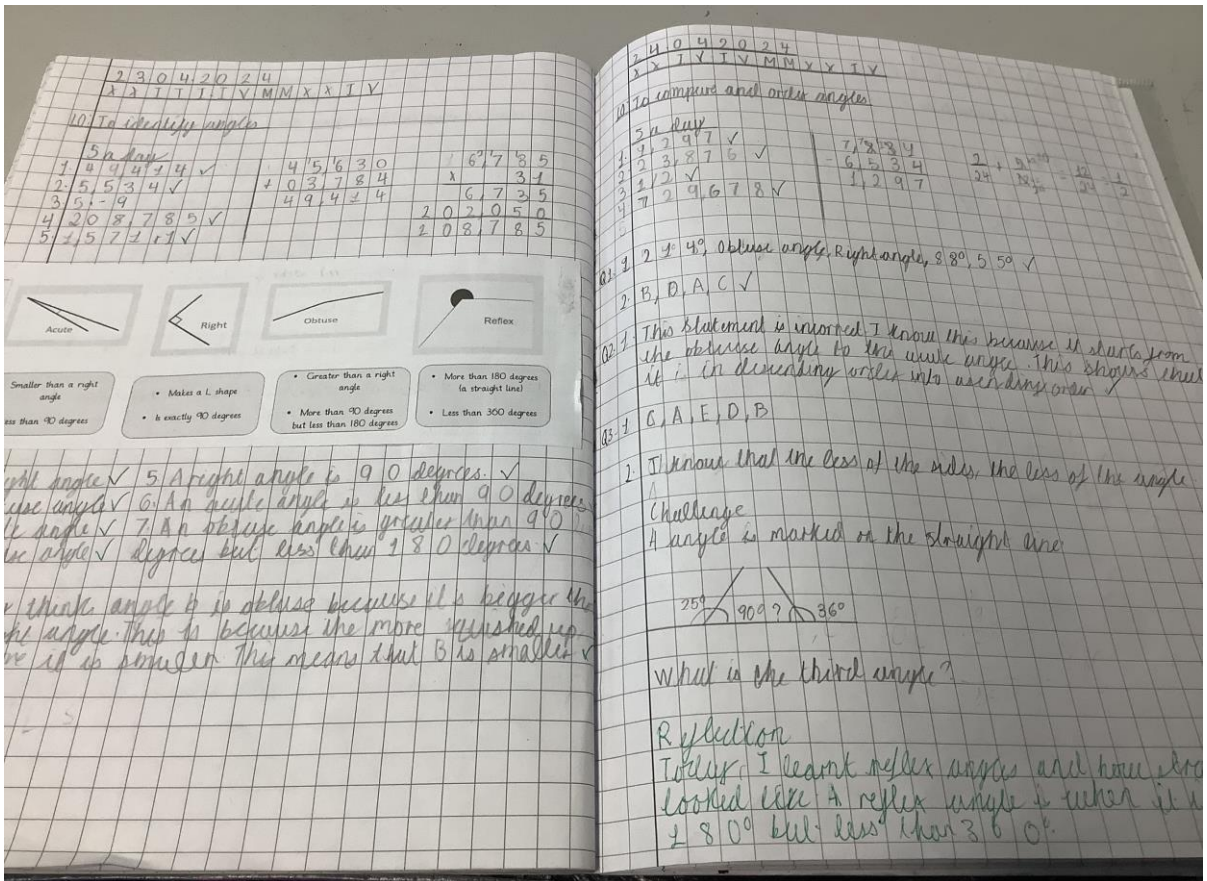 23042024
XXIIIIVMMXXIV
LO: To identify angles
5 a day
1 49414 ✓
2. 5,534 ✓
3 5. - 9
4 208,785 ✓
5 1,571.1 ✓
45,630
+ 03,784
49,414
6785
x 31
6,735
202050
208,785
Acute
Right
Obtuse
Reflex
Smaller than a right
angle
ess than 90 degrees
• Makes a L shape
• Is exactly 90 degrees
• Greater than a right
angle
• More than 90 degrees
but less than 180 degrees
• More than 180 degrees
(a straight line)
• Less than 360 degrees
ght angle ✓ 5. A right angle is 90 degrees. ✓
use angle ✓ 6. An acute angle is less than 90 degrees.
te angle ✓ 7. An obtuse angle is greater than 90
se angle ✓ degrees but less than 180 degrees ✓
think angle b is obtuse because it's bigger the
angle. This is because the more squished up
it is smaller This means that B is smaller ✓
24042024
XXIVIVMMXXIV
LO: To compare and order angles
5 a day
1. 1,297 ✓
2 23,876 ✓
3 1,2 ✓
4 729,678 ✓
- 6,534
1,297
2/24 + = 12/24 = 1/2
Q1. 1 4°, Obtuse angle, Right angle, 88°, 55° ✓
2. B, D, A, C ✓
Q2 1. This statement is incorrect I know this because it starts from
the obtuse angle to the acute angle. This shows that
it is in decending order into asendingorder
Q3. 1 C, A, E, D, B
2. I know that the less of the sides, the less of the angle
Challenge
A angle is marked on the straight line.
25° 90° ? 36°
What is the third angle?
Reflection
Today, I learnt reflex angles and how
looked like A reflex angle is when it
180° but less than 360°.